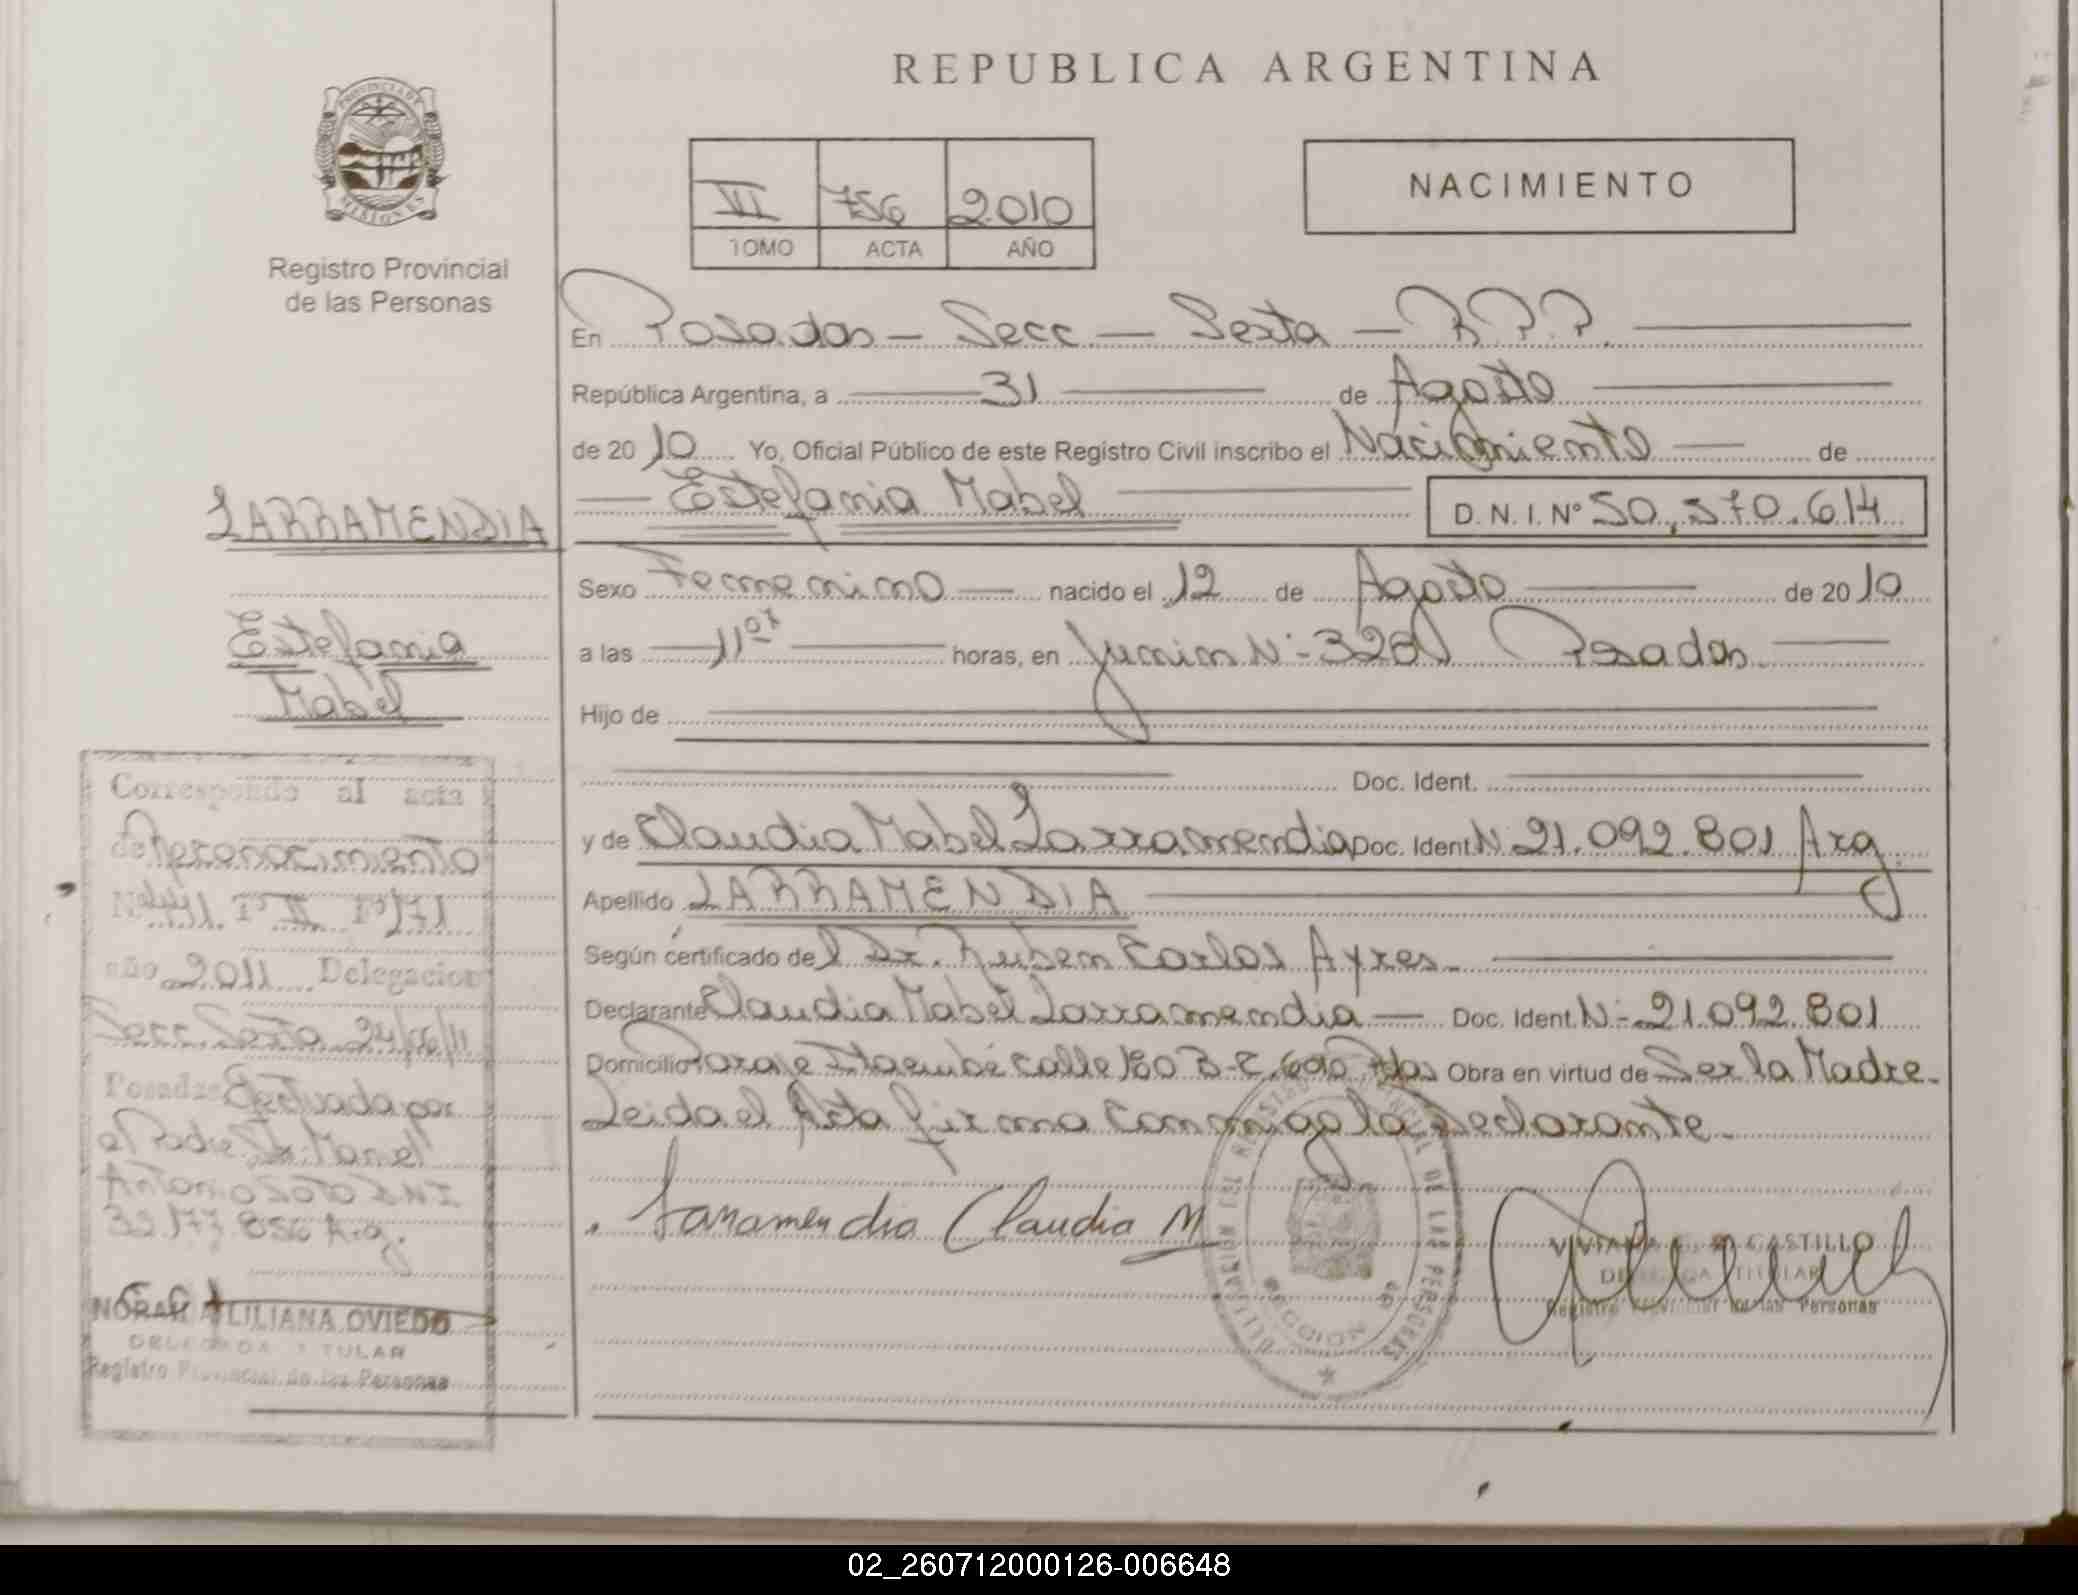 REPUBLICA ARGENTINA
PROVINCIA DE MISIONES
Registro Provincial
de las Personas
VI 756 2010
TOMO ACTA AÑO
NACIMIENTO
En Posadas - Secc - Sexta - R.P.P.
República Argentina, a 31 de Agosto
de 2010 Yo, Oficial Público de este Registro Civil inscribo el Nacimiento de
Estefania Mabel D.N.I. Nº 50.370.614
LARRAMENDIA
Estefania
Mabel
Sexo Femenino nacido el 12 de Agosto de 2010
a las 11 horas, en Junin Nº 3260 Posadas
Hijo de
Doc. Ident.
y de Claudia Mabel Larramendia Doc. Ident. Nº 21.092.801 Arg.
Apellido LARRAMENDIA
Según certificado del Dr. Ruben Carlos Ayres
Declarante Claudia Mabel Larramendia Doc. Ident. Nº 21.092.801
Domicilio Paraje Itaembé calle 180 Pdas Obra en virtud de Ser la Madre
Leida el Acta firma conmigo la declarante
Larramendia Claudia M
VIVIANA CASTILLO
DELEGADA TITULAR
Registro Provincial de las Personas
Corresponde al acta
de Reconocimiento
Nº 141 Tº II Fº 71
año 2011 Delegacion
Secc. Sexta
Posadas Efectuada por
el Padre
Antonio
NORAH LILIANA OVIEDO
DELEGADA TITULAR
Registro Provincial de las Personas
02_260712000126-006648